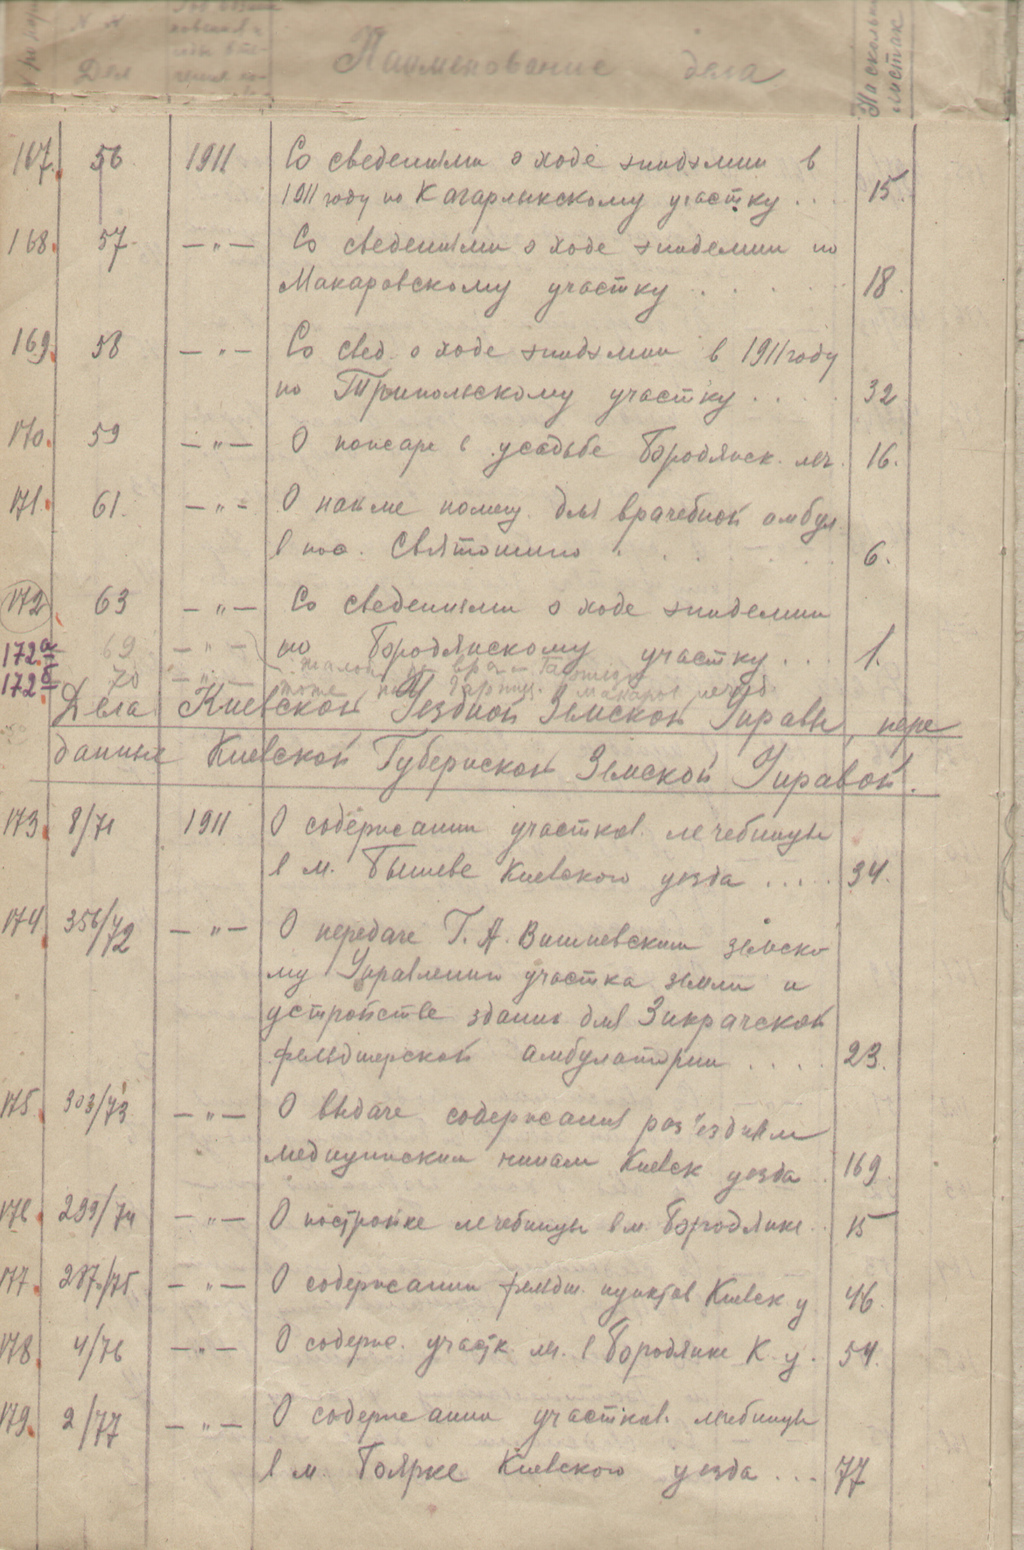 № № Дел
Наименование дела
На сколько листах
167. 56 1911 Со сведениями о ходе эпидэмии в
1911 году по Кагарлыкскому участку . . . 15.
168. 57. — " — Со сведениями о ходе эпидемии по
Макаровскому участку . . . . . 18.
169. 58 — " — Со свед. о ходе эпидэмии в 1911 году
по Трыпольскому участку . . . . 32
170. 59 — " — О пожаре в усадьбе Бородянск. леч. 16.
171. 61. — " — О найме помещ. для врачебной амбул.
в пос. Святошино . . . . . 6.
172 63 — " — Со сведениями о ходе эпидемии
по Бородянскому участку . . . 1.
172а 69 — " —
172б 70 — " —
Дела Киевской Уездной Земской Управы, пере
данные Киевской Губернской Земской Управой.
173. 8/71 1911 О содержании участков. лечебницы
в м. Бышеве Киевского уезда . . . . 34.
174. 356/72 — " — О передаче Г. А. Вишневским земско
му Управлению участка земли и
устройстве здания для Зикрачской
фельдшерской амбулатории . . . . 23.
175. 303/73 — " — О выдаче содержания раз'ездным
медицинским чинам Киевск уезда . 169
176. 299/74 — " — О постройке лечебницы в м. Бородянке . . 15
177. 287/75 — " — О содержании фельдш. пунктов Киевск у. 46.
178. 4/76 — " — О содерж. участк. леч. в Бородянке К. у. 54.
179. 2/77 — " — О содержании участков. лечебницы
в м. Боярке Киевского уезда . . . 77